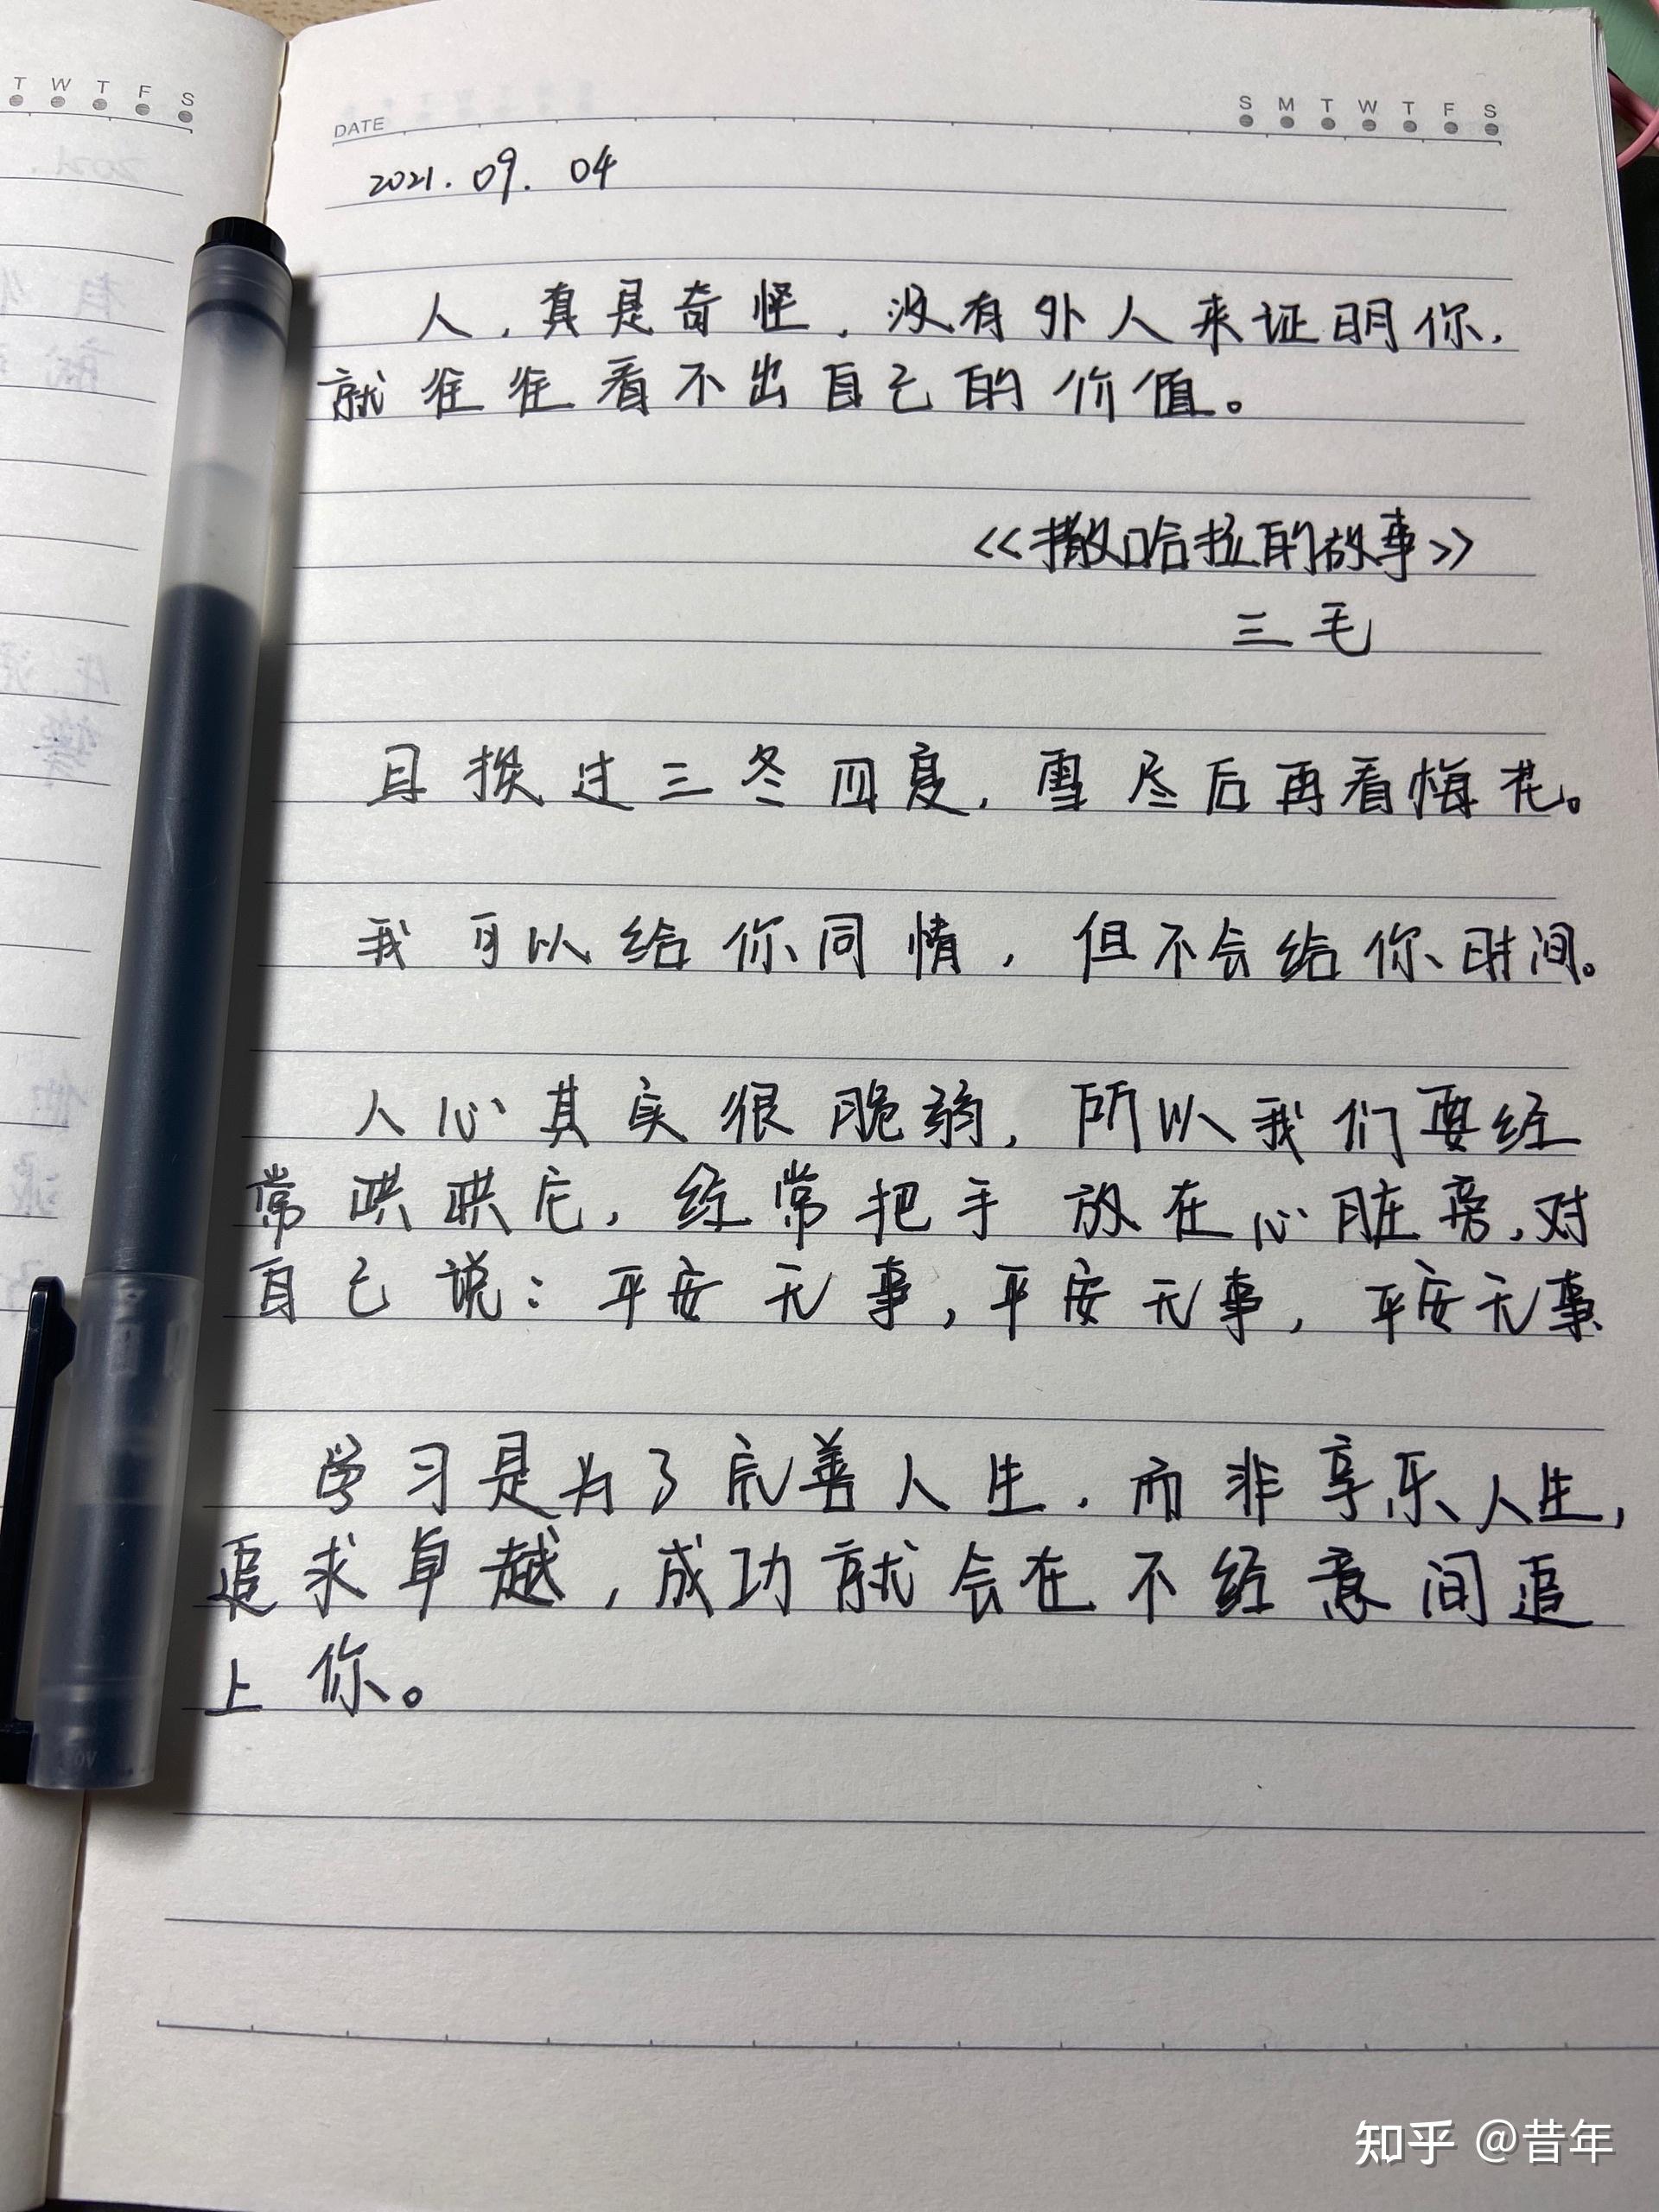 T W T F S
DATE
S M T W T F S
2021.09.04
人,真是奇怪,没有外人来证明你,
就往往看不出自己的价值。
<<撒哈拉的故事>>
三毛
且挨过三冬四夏,雪尽后再看梅花。
我可以给你同情,但不会给你时间。
人心其实很脆弱,所以我们要经
常哄哄它,经常把手放在心脏旁,对
自己说:平安无事,平安无事,平安无事
学习是为了完善人生,而非享乐人生,
追求卓越,成功就会在不经意间追
上你。
知乎 @昔年